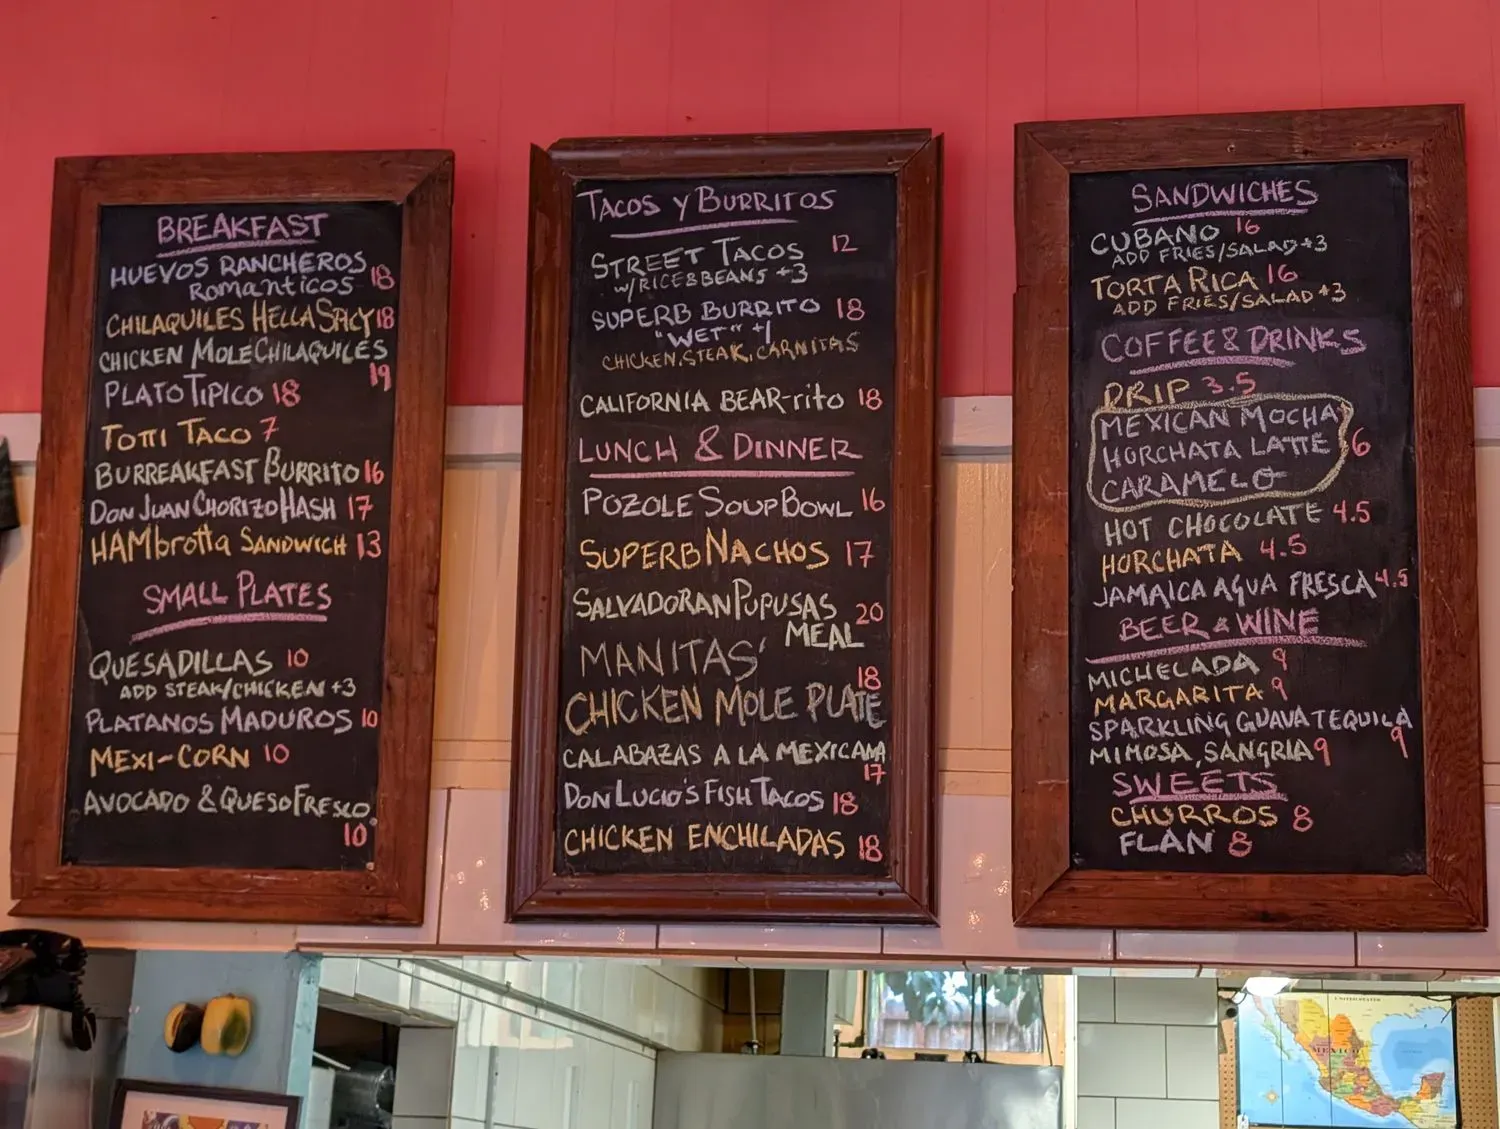 BREAKFAST
HUEVOS RANCHEROS
ROMANTICOS 18
CHILAQUILES HELLA SPICY 18
CHICKEN MOLE CHILAQUILES
19
PLATO TIPICO 18
TOTTI TACO 7
BURREAKFAST BURRITO 16
DON JUAN CHORIZO HASH 17
HAMbrotta SANDWICH 13
SMALL PLATES
QUESADILLAS 10
ADD STEAK/CHICKEN +3
PLATANOS MADUROS 10
MEXI-CORN 10
AVOCADO & QUESO FRESCO
10
TACOS Y BURRITOS
STREET TACOS 12
W/RICE&BEANS +3
SUPERB BURRITO 18
"WET" +1
CHICKEN, STEAK, CARNITAS
CALIFORNIA BEAR-rito 18
LUNCH & DINNER
POZOLE SOUP BOWL 16
SUPERB NACHOS 17
SALVADORAN PUPUSAS 20
MEAL
MANITAS' 18
CHICKEN MOLE PLATE
CALABAZAS A LA MEXICANA
17
DON LUCIO'S FISH TACOS 18
CHICKEN ENCHILADAS 18
SANDWICHES
CUBANO 16
ADD FRIES/SALAD +3
TORTA RICA 16
ADD FRIES/SALAD +3
COFFEE & DRINKS
DRIP 3.5
MEXICAN MOCHA
HORCHATA LATTE 6
CARAMELO
HOT CHOCOLATE 4.5
HORCHATA 4.5
JAMAICA AGUA FRESCA 4.5
BEER & WINE
MICHELADA 9
MARGARITA 9
SPARKLING GUAVA TEQUILA
MIMOSA, SANGRIA 9 9
SWEETS
CHURROS 8
FLAN 8
MEXICO